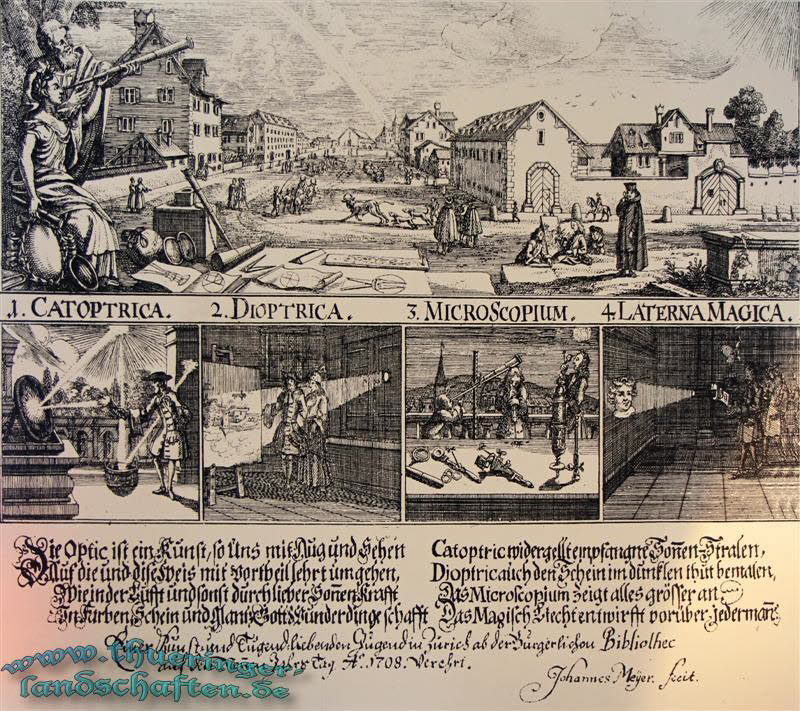 1. CATOPTRICA. 2. DIOPTRICA. 3. MICROSCOPIUM. 4. LATERNA MAGICA.
Die Optic ist ein Kunst, so Uns mit Aug und Sehen
Auf die und dise Weis mit vortheil lehrt umgehen,
Wie in der Lufft und sonst durch der Soñen Krafft
In Farben Schein und Glantz Gott Wunderdinge schafft
Catoptric widergellt empfangne Soñen-Stralen,
Dioptric auch den Schein im dunklen thut bemalen,
Das Microscopium zeigt alles grösser an
Das Magisch Liecht entwirfft vorüber Jedermañ.
Einer Kunst- und Tugend-liebenden Jugend in Zürich ab der Burgerlichen Bibliothec
Jahrs Tag A°. 1708. Verehrt.
Johannes Meÿer. fecit.
www.thueringer-
landschaften.de